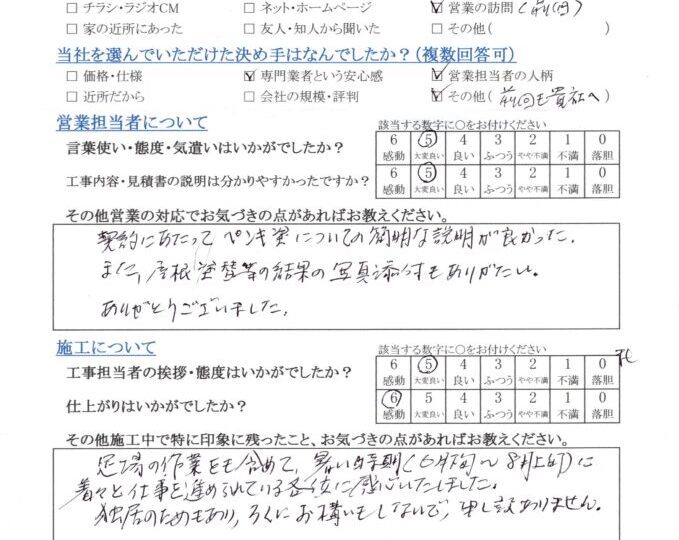 □ チラシ・ラジオCM □ ネット・ホームページ ☑ 営業の訪問(前回)
□ 家の近所にあった □ 友人・知人から聞いた □ その他( )
当社を選んでいただけた決め手はなんでしたか?(複数回答可)
□ 価格・仕様 ☑ 専門業者という安心感 ☑ 営業担当者の人柄
□ 近所だから □ 会社の規模・評判 ☑ その他(前回も貴社へ)
営業担当者について 該当する数字に○をお付けください
言葉使い・態度・気遣いはいかがでしたか? 6 5 4 3 2 1 0
感動 大変良い 良い ふつう やや不満 不満 落胆
工事内容・見積書の説明は分かりやすかったですか? 6 5 4 3 2 1 0
感動 大変良い 良い ふつう やや不満 不満 落胆
その他営業の対応でお気づきの点があればお教えください。
契約にあたって ペンキ塗についての簡明な説明が良かった.
また、屋根塗替等の結果の写真添付もありがたい。
ありがとうございました.
施工について 該当する数字に○をお付けください
工事担当者の挨拶・態度はいかがでしたか? 6 5 4 3 2 1 0
感動 大変良い 良い ふつう やや不満 不満 落胆
仕上がりはいかがでしたか? 6 5 4 3 2 1 0
感動 大変良い 良い ふつう やや不満 不満 落胆
その他施工中で特に印象に残ったこと、お気づきの点があればお教えください。
足場の作業をも含めて、暑い時期(6月下旬～8月上旬)に
着々と仕事を進められている各位に感心いたしました.
独居のためもあり, ろくにお構いもしないで, 申し訳ありません.